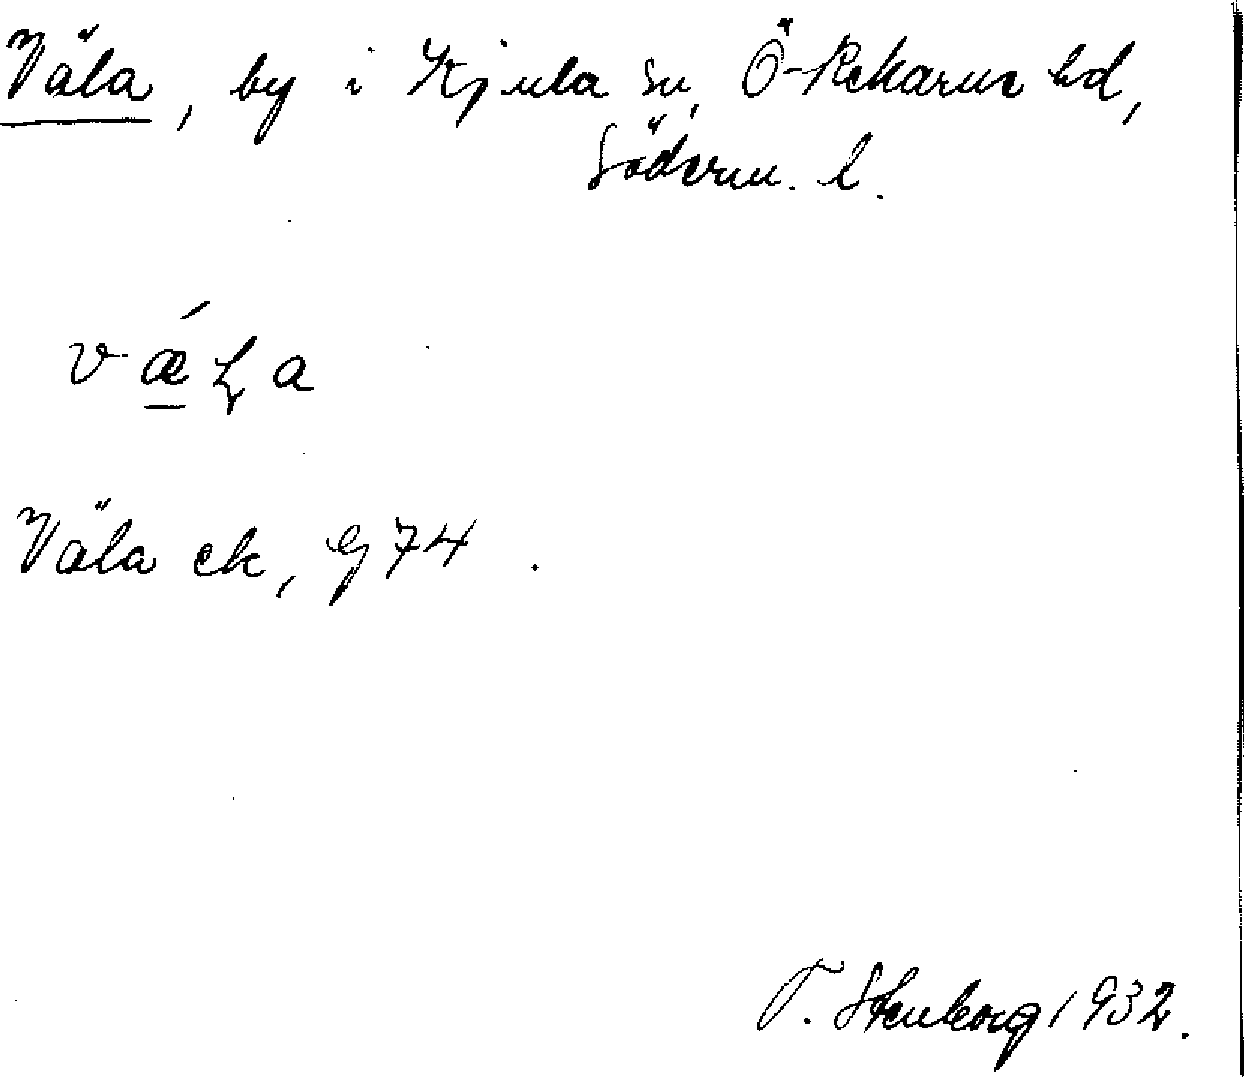 Väla, by i Kjula sn, Ö-Rekarne hd,
Söderm. l.
vǽla
Väla ek, G 74.
T. Stenborg 1932.